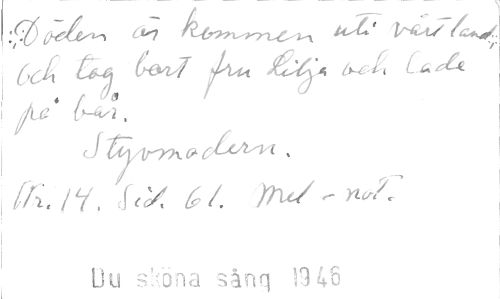 :,: Döden är kommen uti vårt land :,:
och tog bort fru Lilja och lade
på bår.
Styvmodern.
Nr. 14. Sid. 61. Mel - not.
Du sköna sång 1946